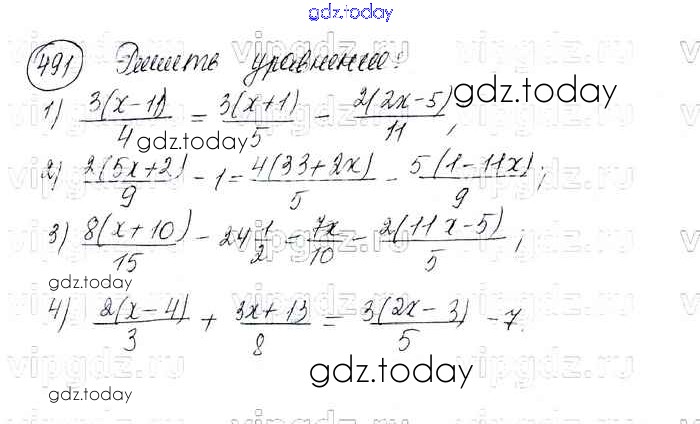 gdz.today
491 Решите уравнение:
1) 3(x-11)/4 = 3(x+1)/5 - 2(2x-5)/11,
gdz.today
gdz.today
2) 2(5x+2)/9 - 1 = 4(33+2x)/5 - 5(1-11x)/9;
3) 8(x+10)/15 - 24 1/2 = 7x/10 - 2(11x-5)/5;
gdz.today
4) 2(x-4)/3 + 3x+13/8 = 3(2x-3)/5 - 7.
gdz.today
gdz.today